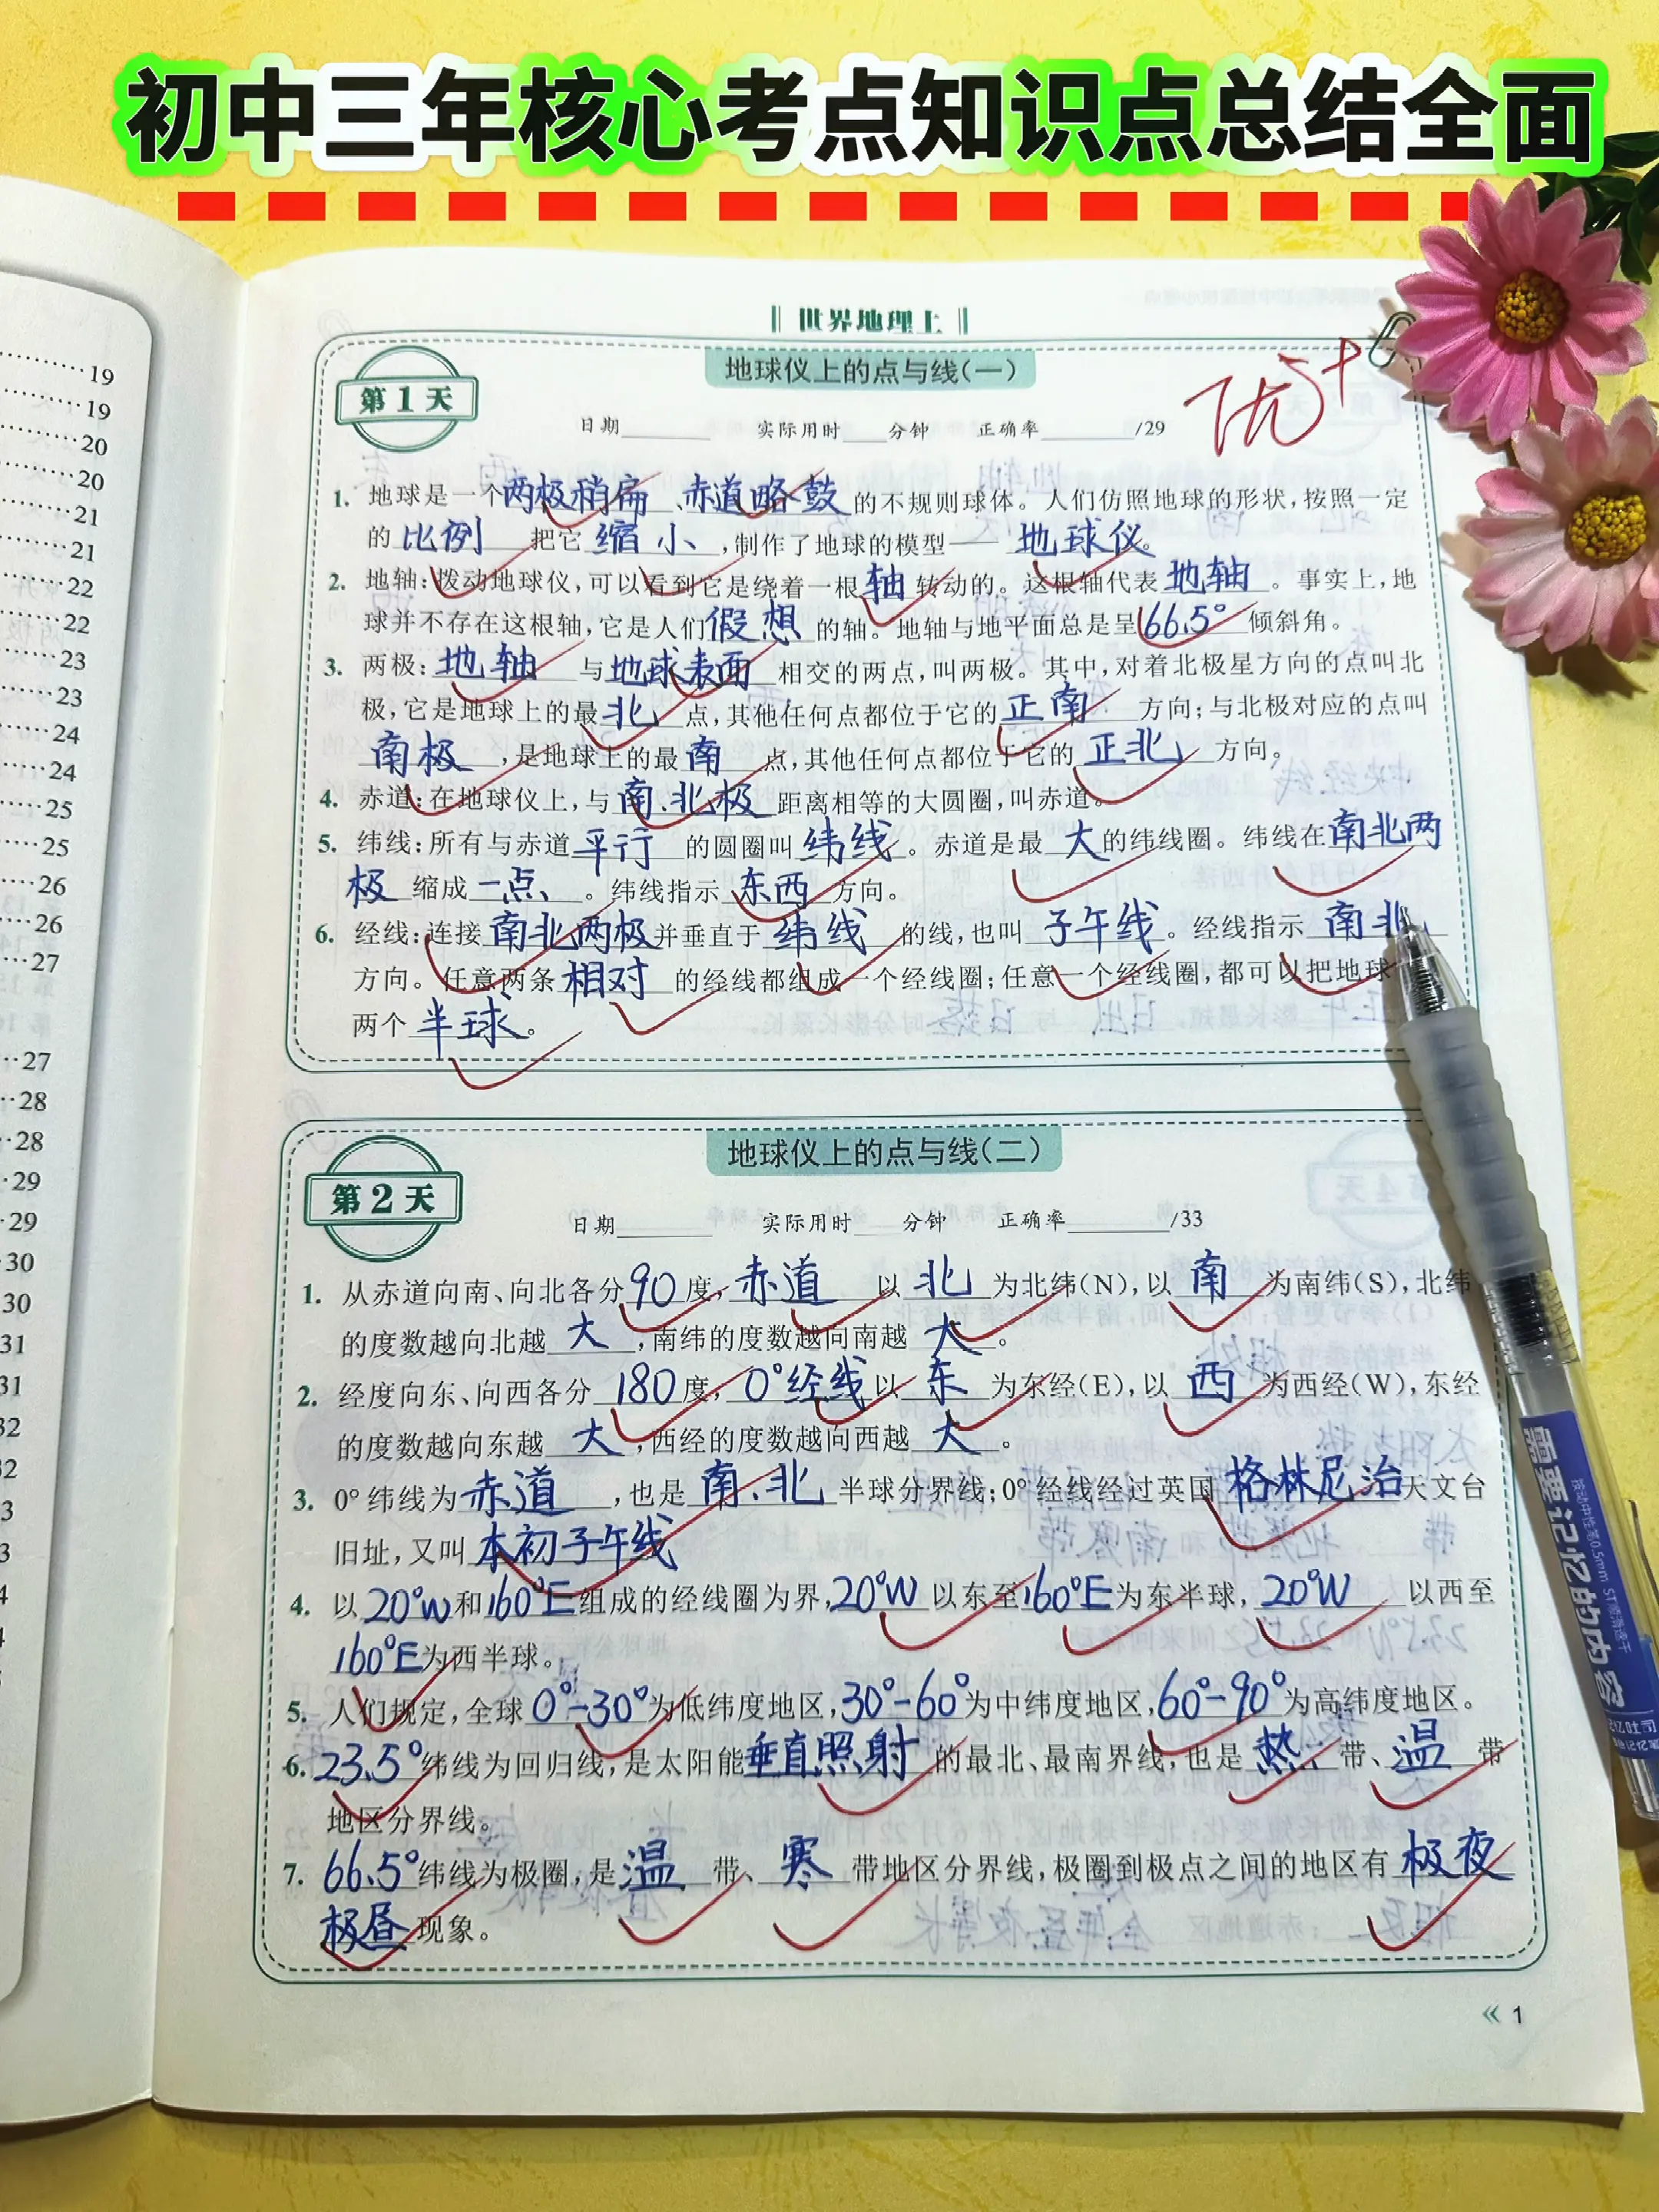 初中三年核心考点知识点总结全面
世界地理上
第1天
地球仪上的点与线(一)
优5+
日期 实际用时 分钟 正确率 /29
1. 地球是一个两极稍扁、赤道略鼓的不规则球体。人们仿照地球的形状,按照一定
的比例把它缩小,制作了地球的模型——地球仪。
2. 地轴:拨动地球仪,可以看到它是绕着一根轴转动的。这根轴代表地轴。事实上,地
球并不存在这根轴,它是人们假想的轴。地轴与地平面总是呈66.5°倾斜角。
3. 两极:地轴与地球表面相交的两点,叫两极。其中,对着北极星方向的点叫北
极,它是地球上的最北点,其他任何点都位于它的正南方向;与北极对应的点叫
南极,是地球上的最南点,其他任何点都位于它的正北方向。
4. 赤道:在地球仪上,与南、北极距离相等的大圆圈,叫赤道。
5. 纬线:所有与赤道平行的圆圈叫纬线。赤道是最大的纬线圈。纬线在南北两
极缩成一点、。纬线指示东西方向。
6. 经线:连接南北两极并垂直于纬线的线,也叫子午线。经线指示南北
方向。任意两条相对的经线都组成一个经线圈;任意一个经线圈,都可以把地球
两个半球。
第2天
地球仪上的点与线(二)
日期 实际用时 分钟 正确率 /33
1. 从赤道向南、向北各分90度,赤道以北为北纬(N),以南为南纬(S),北纬
的度数越向北越大,南纬的度数越向南越大。
2. 经度向东、向西各分180度,0°经线以东为东经(E),以西为西经(W),东经
的度数越向东越大,西经的度数越向西越大。
3. 0°纬线为赤道,也是南、北半球分界线;0°经线经过英国格林尼治天文台
旧址,又叫本初子午线
4. 以20°W和160°E组成的经线圈为界,20°W以东至160°E为东半球,20°W以西至
160°E为西半球。
5. 人们规定,全球0°-30°为低纬度地区,30°-60°为中纬度地区,60°-90°为高纬度地区。
6. 23.5°纬线为回归线,是太阳能垂直照射的最北、最南界线,也是热带、温带
地区分界线。
7. 66.5°纬线为极圈,是温带、寒带地区分界线,极圈到极点之间的地区有极夜
极昼现象。
« 1
19
19
20
20
21
21
22
22
23
23
24
24
25
25
26
26
27
27
28
28
29
29
30
30
31
31
需要记忆的内容